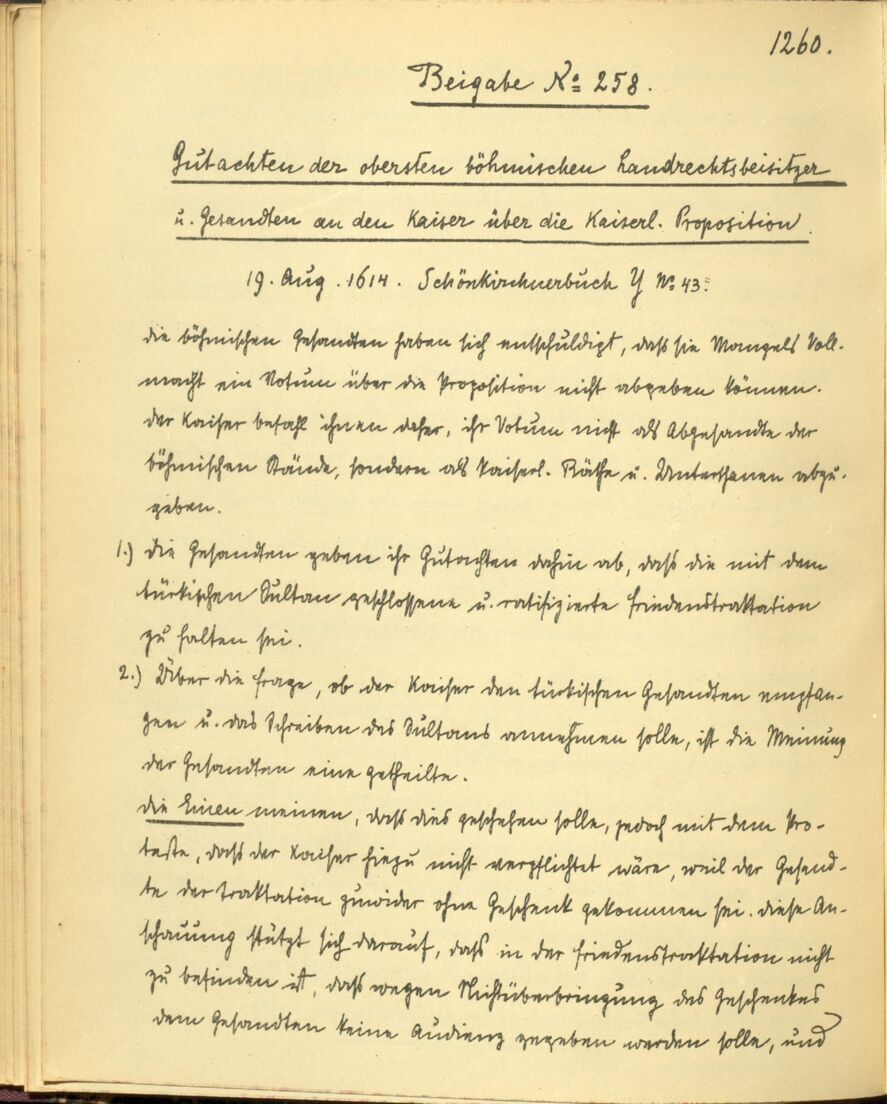 1260.
Beigabe No 258.
Gutachten der obersten böhmischen Landrechtsbeisitzer
u. Gesandten an den Kaiser über die Kaiserl. Proposition.
19. Aug. 1614. Schönkirchnerbuch Y No 43.
Die böhmischen Gesandten haben sich entschuldigt, daß sie Mangels Voll-
macht ein Votum über die Proposition nicht abgeben können.
Der Kaiser befahl ihnen daher, ihr Votum nicht als Abgesandte der
böhmischen Stände, sondern als Kaiserl. Räthe u. Unterthanen abzu-
geben.
1.) Die Gesandten geben ihr Gutachten dahin ab, daß die mit dem
türkischen Sultan geschlossene u. ratifizierte Friedenstraktation
zu halten sei.
2.) Über die Frage, ob der Kaiser den türkischen Gesandten empfan-
gen u. das Schreiben des Sultans annehmen solle, ist die Meinung
der Gesandten eine getheilte.
Die Einen meinen, daß dies geschehen solle, jedoch mit dem Pro-
teste, daß der Kaiser hiezu nicht verpflichtet wäre, weil der Gesand-
te der Traktation zuwider ohne Geschenk gekommen sei. Diese An-
schauung stützt sich darauf, daß in der Friedenstraktation nicht
zu befinden ist, daß wegen Nichtüberbringung des Geschenkes
dem Gesandten keine Audienz gegeben werden solle, und